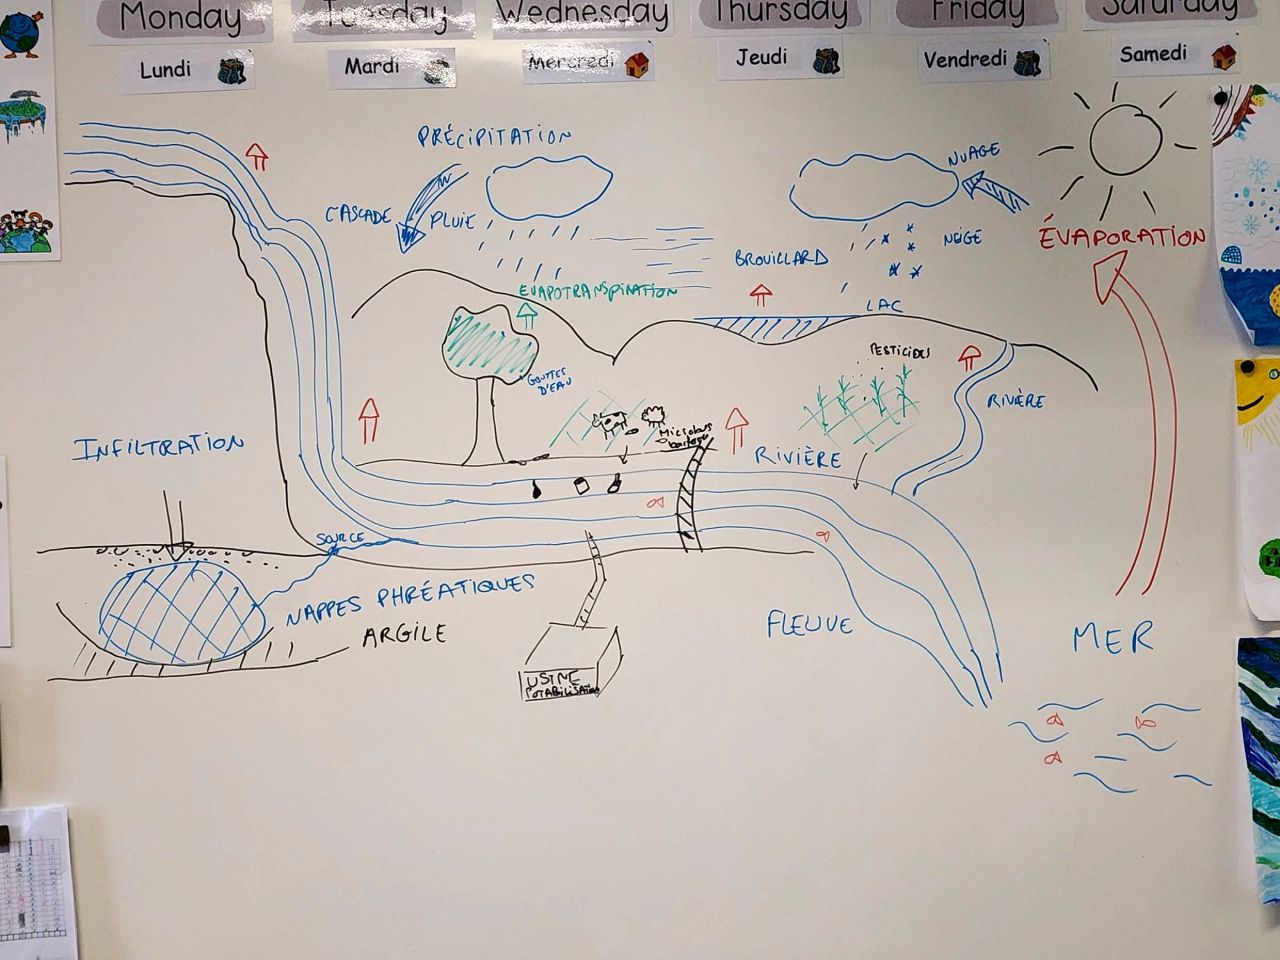 Monday
Tuesday
Wednesday
Thursday
Friday
Saturday
Lundi
Mardi
Mercredi
Jeudi
Vendredi
Samedi
PRÉCIPITATION
NUAGE
CASCADE
PLUIE
NEIGE
ÉVAPORATION
BROUILLARD
EVAPOTRANSPIRATION
LAC
PESTICIDES
GOUTTES
D'EAU
RIVIÈRE
INFILTRATION
RIVIÈRE
SOURCE
NAPPES PHRÉATIQUES
ARGILE
FLEUVE
MER
USINE
POTABILISATION